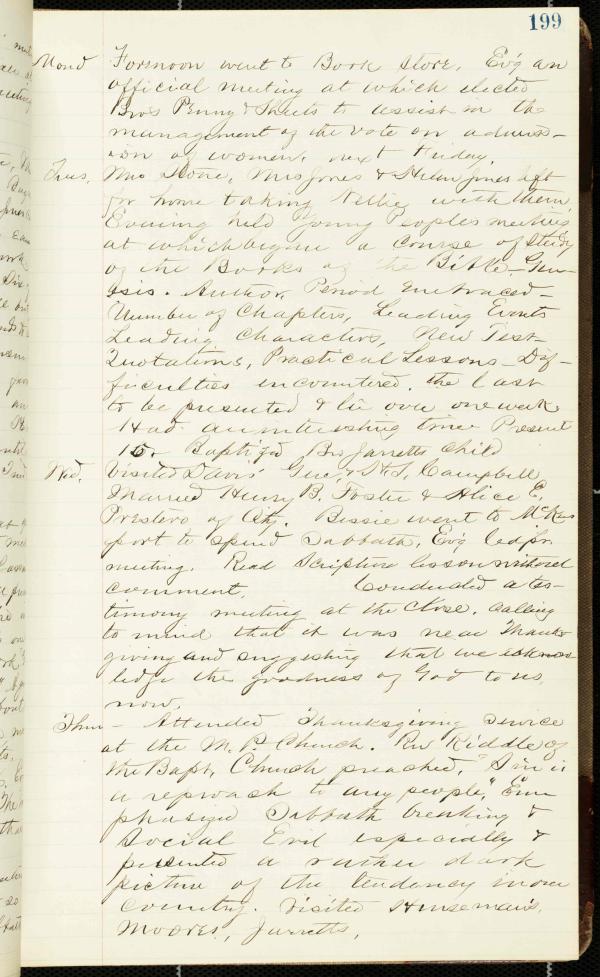 199
Mond Forenoon went to Book Store. Ev'g an
official meeting at which elected
Bros Penny & Sheets to assist in the
management of the vote on admiss-
ion of women, next Friday.
Tues. Mrs Stone, Mrs Jones & Helen Jones left
for home taking Nellie with them.
Evening held Young Peoples meeting
at which began a course of Study
of the Books of the Bible - Gen-
esis. Author, Period Embraced -
Number of Chapters, Leading Events
Leading Characters, New Test-
Quotations, Practical Lessons - Dif-
ficulties encountered. the last
to be presented & lie over one week
Had an interesting time Present
15. Baptized Bro Jarretts Child
Wed. Visited Davis' Campbell
Married Henry B. Foster & Alice E.
of City. Bessie went to McKees
port to spend Sabbath, Ev'g led pr.
meeting. Read Scripture lesson without
comment. Conducted a tes-
timony meeting at the close. Calling
to mind that it was near Thanks
giving and suggesting that we acknow
ledge the goodness of God to us
now.
Thur - Attended Thanksgiving Service
at the M. P. Church. Rev Riddle of
the Bapt. Church preached, "Sin is
a reproach to any people," Em-
phasized Sabbath breaking &
Social Evil especially &
presented a rather dark
picture of the tendency in our
country. Visited Hinseman's,
Moores, Jarretts,